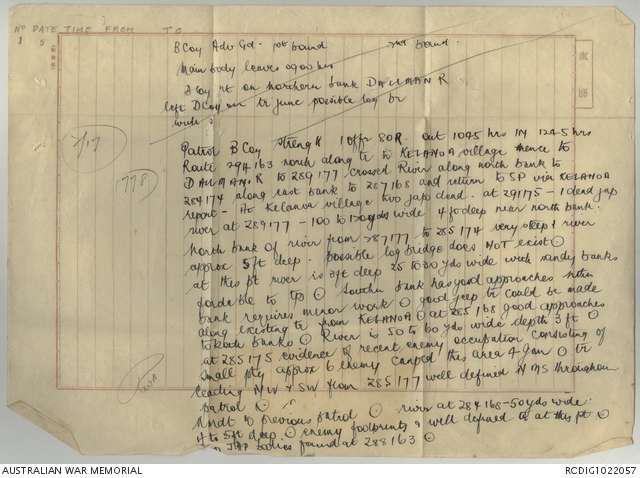 No DATE TIME FROM TO
1 5
B Coy Adv Gd - 1st bound 2nd bound.
Main body leaves 0900 hrs
Coy rt on northern bank DAUMAN R
left D Coy on tr junc possible log br
with
2/17
778
Patrol B Coy strength 1 offr 8 OR out 1045 hrs IN 1245 hrs
Route 294163 north along tr to KELANOA village thence to
DAUMAN R to 289177 crossed River along north bank to
284174 along east bank to 287168 and return to SP via KELANOA
report - At Kelanoa village two Jap dead. at 291175 - 1 dead Jap
river at 289177 - 100 to yds wide 4 ft deep near north bank.
north bank of river from 287177 to 285174 very steep & river
approx 5 ft deep. possible log bridge does NOT exist ⊙
at this pt river is 3 ft deep 25 to 30 yds wide with sandy banks
fordable to tps ⊙ Southern bank has good approaches nthn
bank requires minor work ⊙ good jeep tr could be made
along existing tr from KELANOA ⊙ at 285168 good approaches
to both banks ⊙ River is 50 to 60 yds wide depth 3 ft ⊙
at 285175 evidence of recent enemy occupation consisting of
small pty approx 6 enemy camped this area 4 Jan ⊙ tr
leading NW & SW from 285177 well defined N MS throughout
patrol ⊙
Andt to previous patrol ⊙ river at 284168 - 50 yds wide
4 to 5 ft deep ⊙ enemy footprints & well defined tr at this pt ⊙
JAP bodies found at 288163 ⊙
AUSTRALIAN WAR MEMORIAL
RCDIG1022057